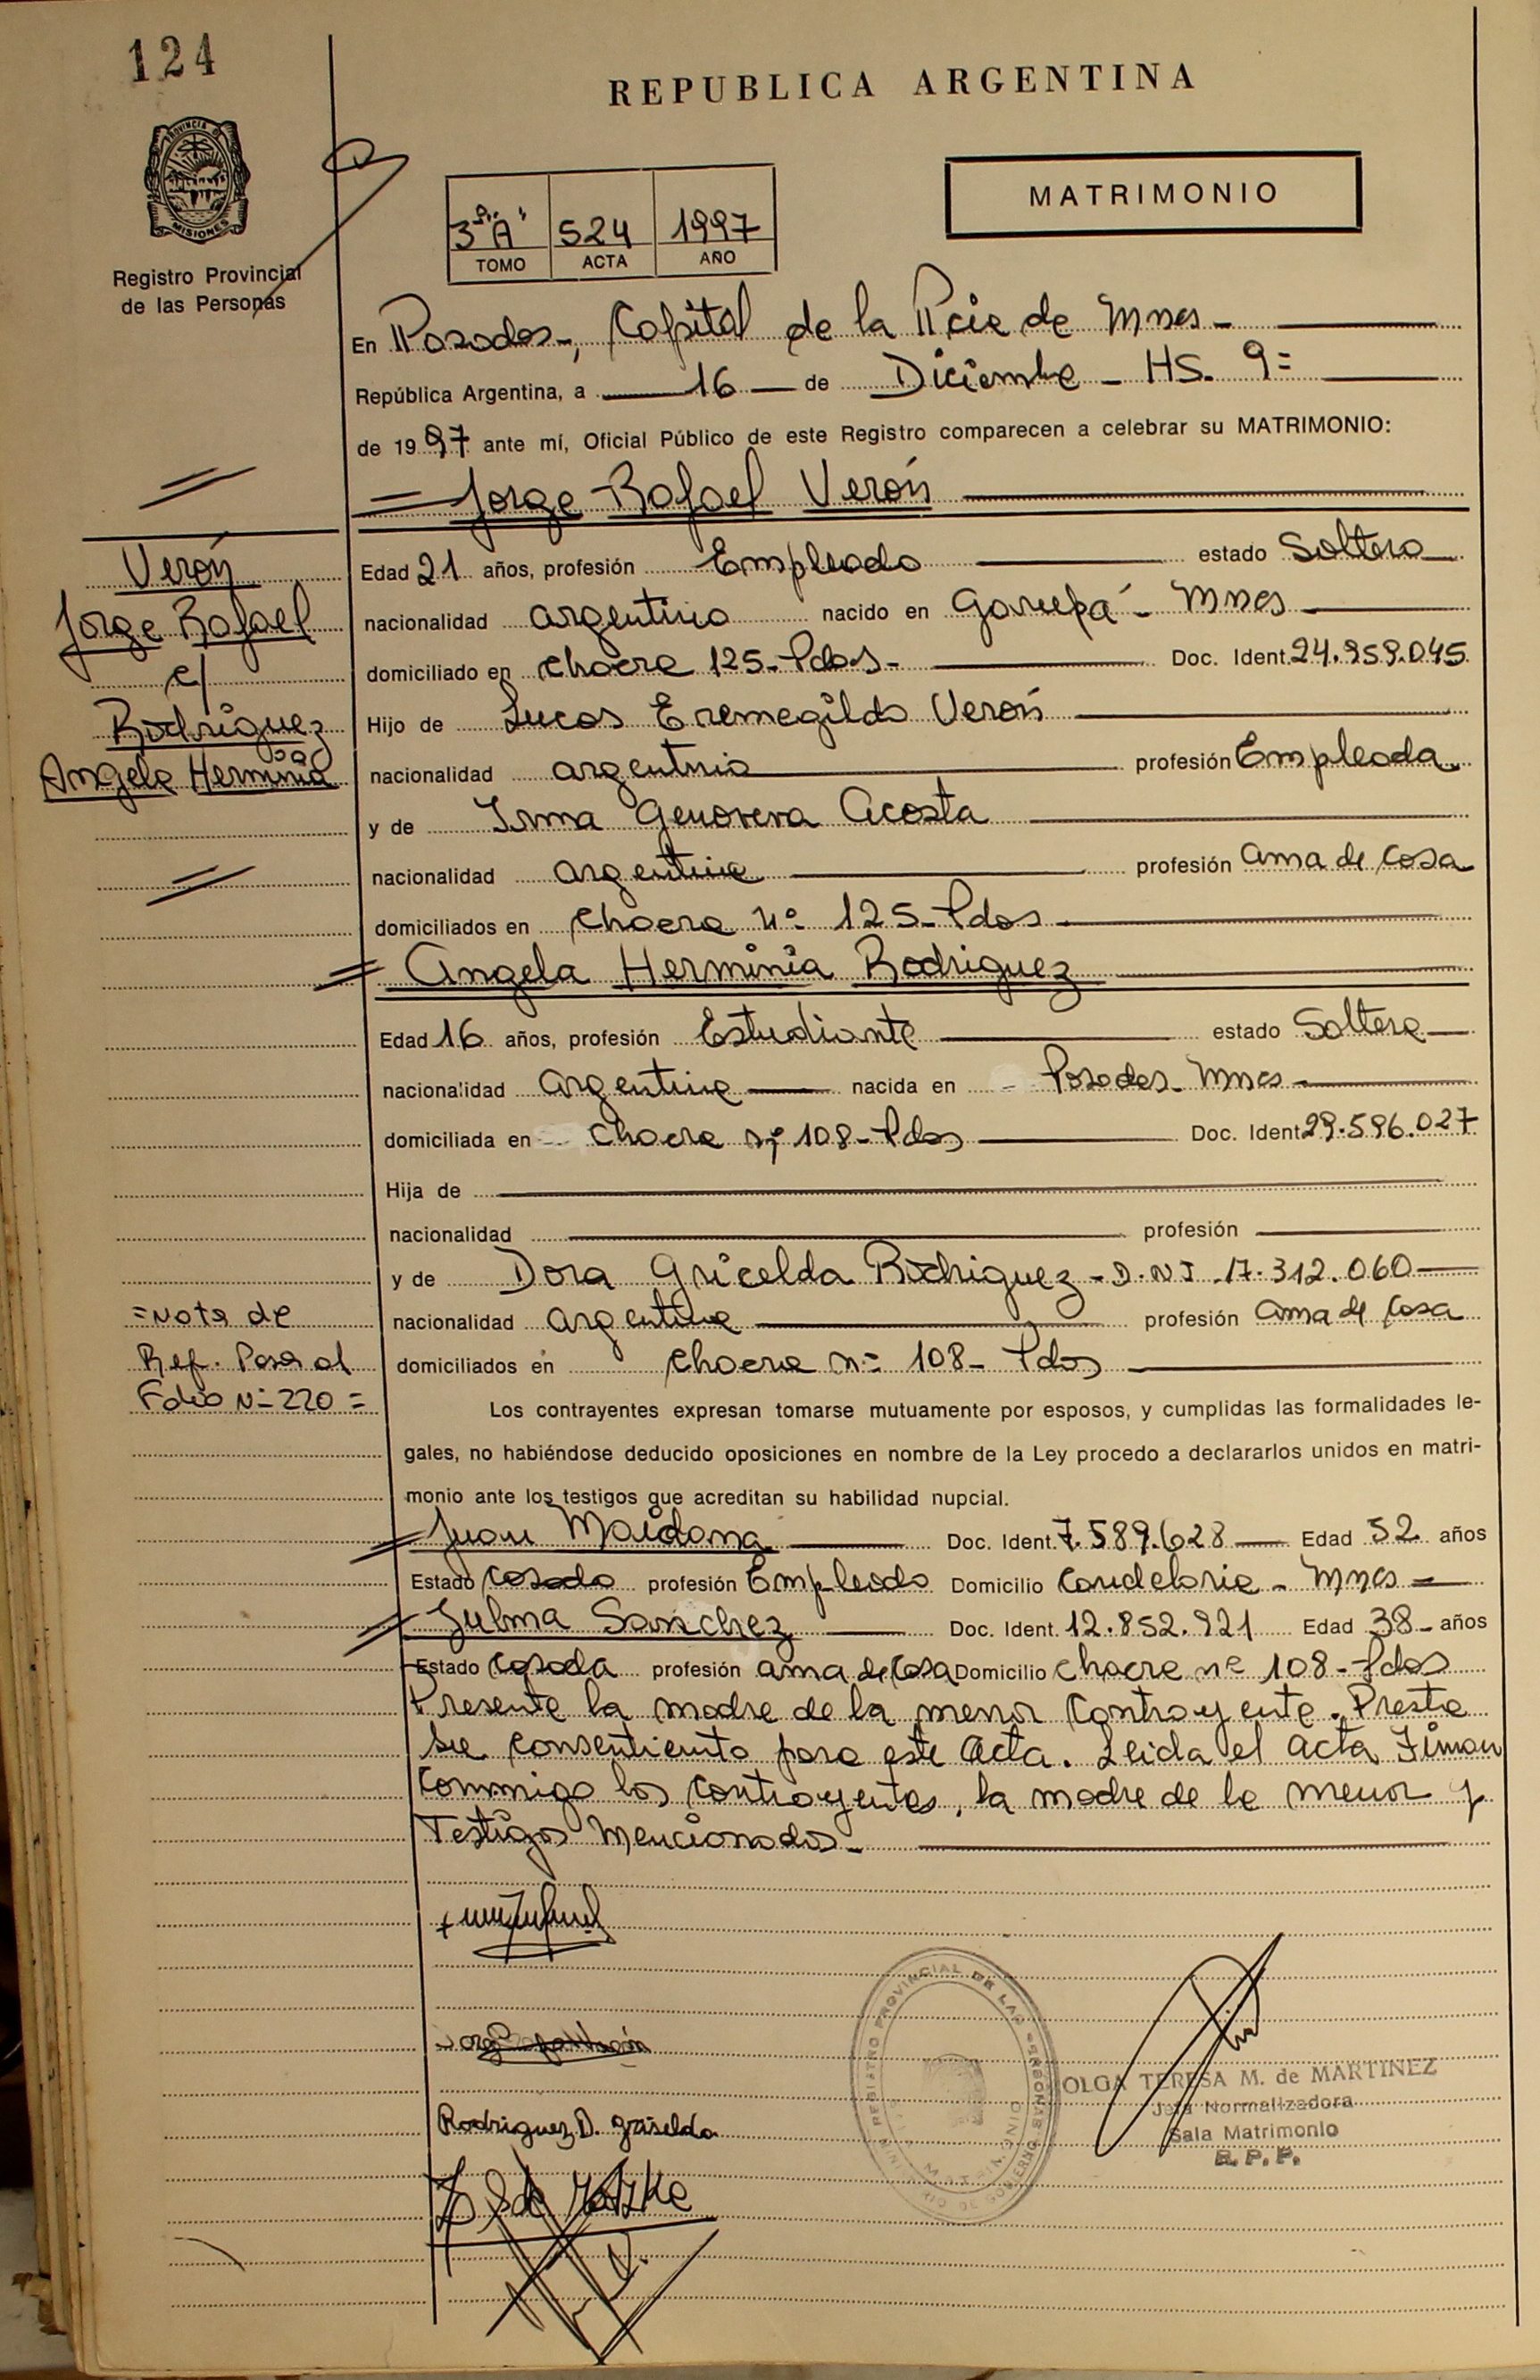 124
REPUBLICA ARGENTINA
PROVINCIA D
MISIONES
Registro Provincial
de las Personas
MATRIMONIO
3º "A" 524 1997
TOMO ACTA AÑO
En Posadas-, Capital de la Pcia de Mnes-
República Argentina, a 16 de Diciembre - HS. 9=
de 1997 ante mí, Oficial Público de este Registro comparecen a celebrar su MATRIMONIO:
= Jorge Rafael Verón
Verón
Jorge Rafael
c/
Rodríguez
Angela Herminia
Edad 21 años, profesión Empleado estado Soltero
nacionalidad argentino nacido en Garupá - Mnes
domiciliado en chacra 125-Pdas- Doc. Ident. 24.959.045
Hijo de Lucas Eremegildo Verón
nacionalidad argentino profesión Empleado
y de Irma Genoveva Acosta
nacionalidad argentina profesión ama de casa
domiciliados en chacra nº 125-Pdas
= Angela Herminia Rodriguez
Edad 16 años, profesión Estudiante estado Soltera
nacionalidad argentina nacida en Posadas-Mnes
domiciliada en chacra nº 108-Pdas Doc. Ident. 29.596.027
Hija de
nacionalidad profesión
y de Dora Gricelda Rodriguez - D.N.I. 17.312.060
nacionalidad argentina profesión ama de casa
domiciliados en chacra nº 108- Pdas
=Nota de
Ref. Pasa al
Folio Nº 220=
Los contrayentes expresan tomarse mutuamente por esposos, y cumplidas las formalidades le-
gales, no habiéndose deducido oposiciones en nombre de la Ley procedo a declararlos unidos en matri-
monio ante los testigos que acreditan su habilidad nupcial.
= Juan Maidana Doc. Ident. 7.589.628 Edad 52 años
Estado casado profesión Empleado Domicilio Candelaria - Mnes
= Julma Sanchez Doc. Ident. 12.852.921 Edad 38 años
Estado casada profesión ama de casa Domicilio chacra nº 108-Pdas
Presente la madre de la menor contrayente. Presta
su consentiento para este Acta. Leida el acta Firman
conmigo los contrayentes, la madre de la menor y
Testigos Mencionados-
Rodriguez D. Griselda
REGISTRO PROVINCIAL DE LAS PERSONAS
OLGA TERESA M. de MARTINEZ
Jefa Normalizadora
Sala Matrimonio
R. P. P.